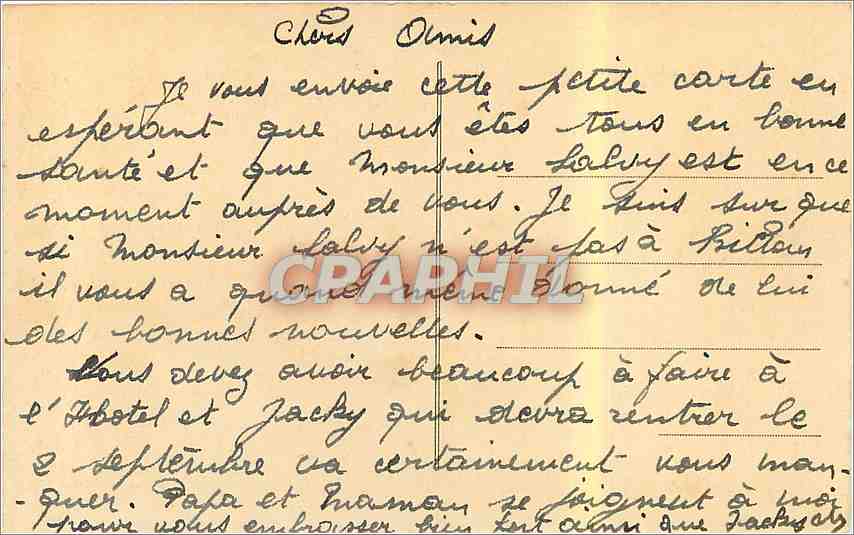 Chers Amis
Je vous envoie cette petite carte en
espérant que vous êtes tous en bonne
santé et que Monsieur Salvy est en ce
moment auprès de vous. Je suis sur que
si Monsieur Salvy n'est pas à
il vous a quand même donné de lui
des bonnes nouvelles.
Vous devez avoir beaucoup à faire à
l'Hotel et Jacky qui devra rentrer le
2 septembre va certainement vous man-
-quer. Papa et Maman se joignent à moi
pour vous embrasser bien fort ainsi que Jacky
CPAPHIL